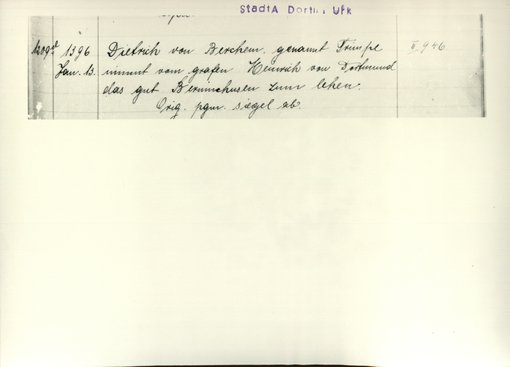 StadtA Dortm. Urk
1396 Dietrich von Berchem, genannt Trimpe II. 946
Jan. 13. nimmt vom grafen Heinrich von Dortmund
das gut zum lehen.
Orig. pgm. siegel ab.